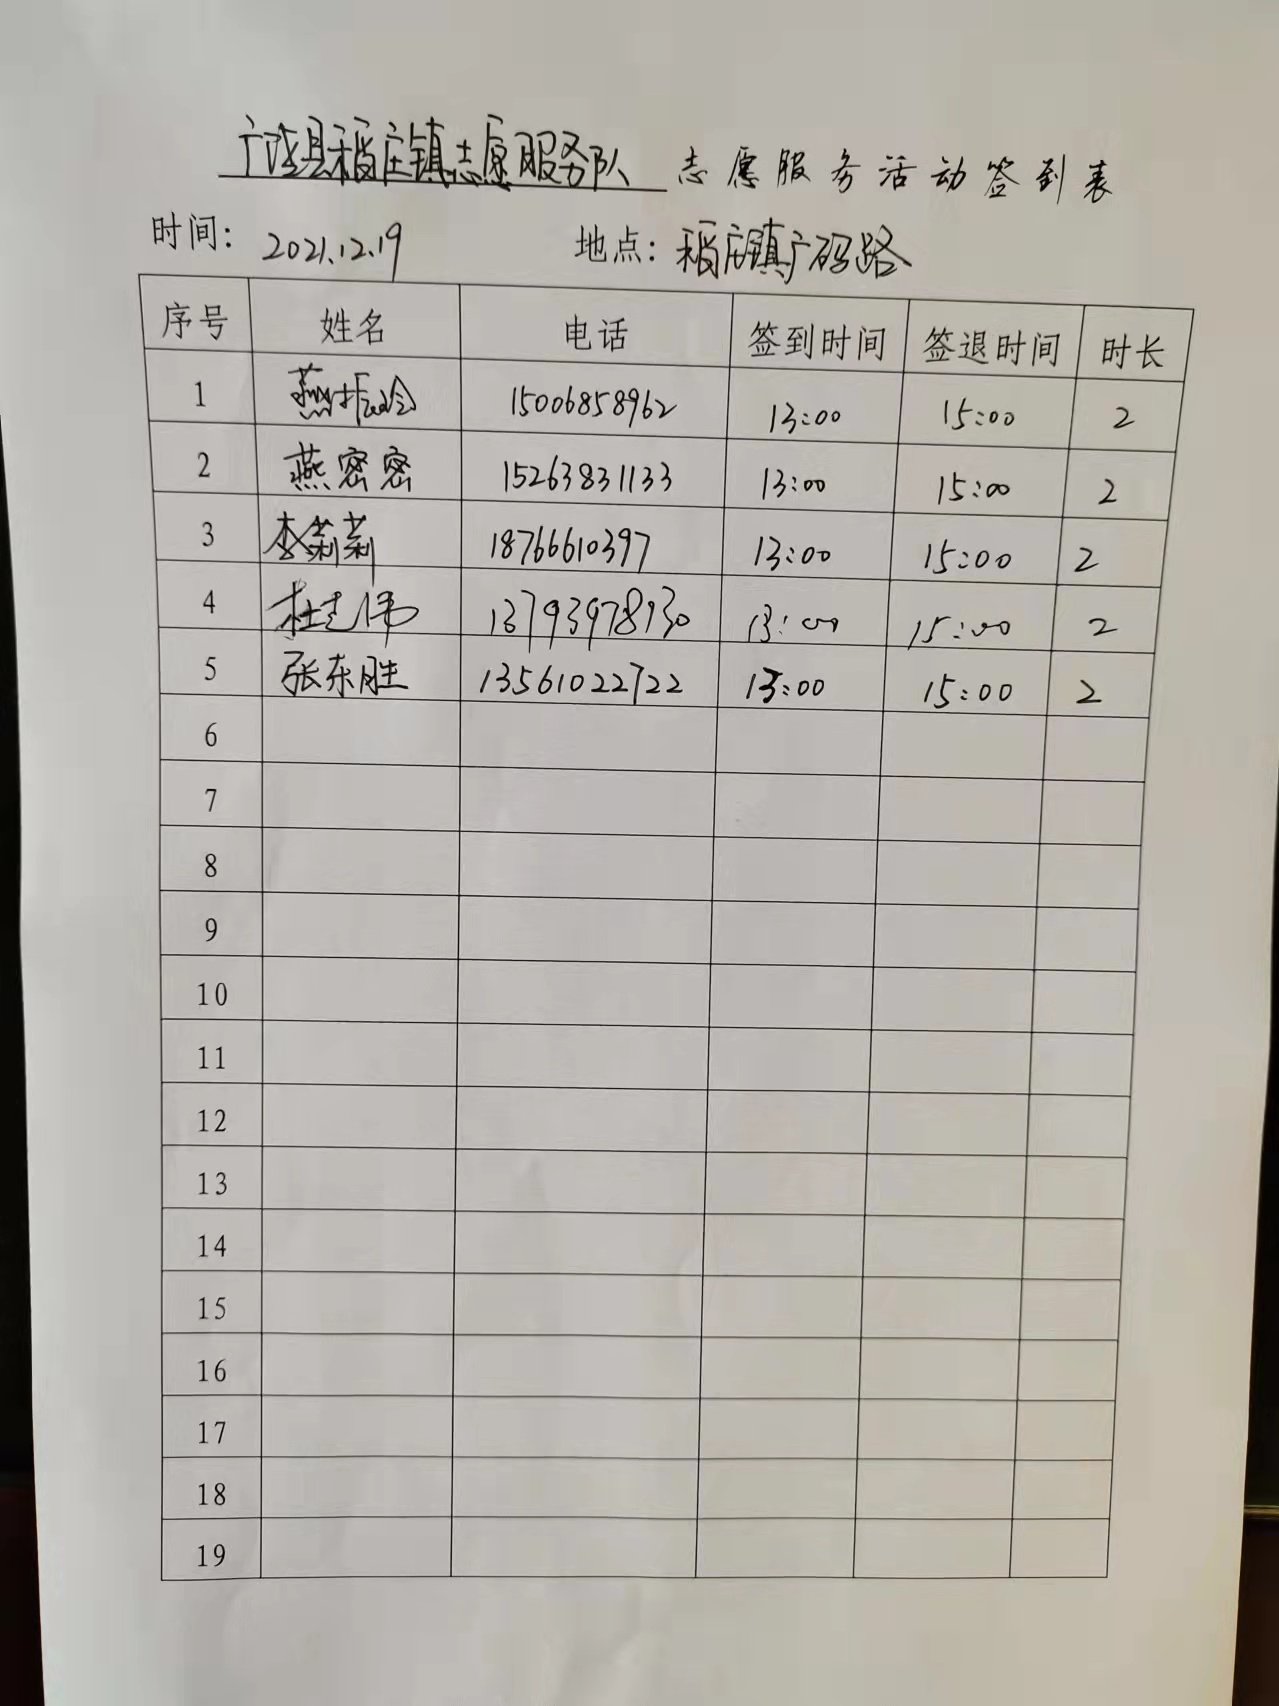 广饶县稻庄镇志愿服务队 志愿服务活动签到表
时间: 2021.12.19 地点: 稻庄镇广码路
序号 姓名 电话 签到时间 签退时间 时长
1 燕振玲 15006858962 13:00 15:00 2
2 燕密密 15263831133 13:00 15:00 2
3 李莉莉 18766610397 13:00 15:00 2
4 杜志伟 13793978130 13:00 15:00 2
5 张东胜 13561022722 13:00 15:00 2
6
7
8
9
10
11
12
13
14
15
16
17
18
19